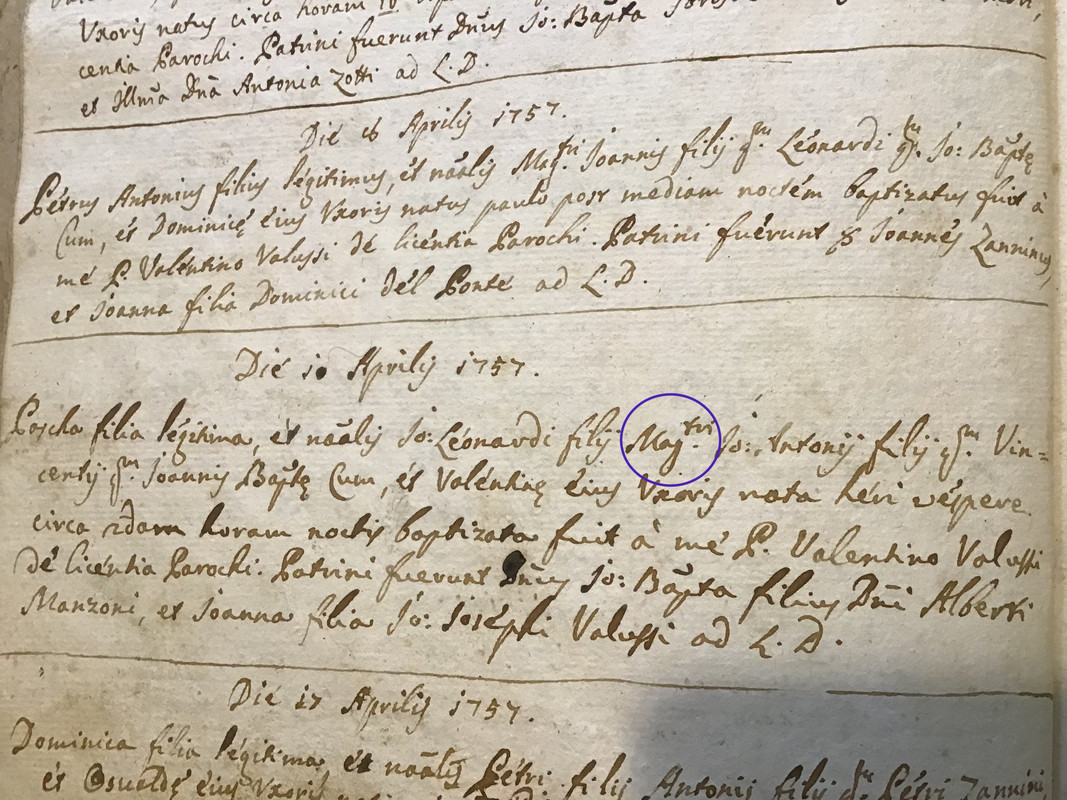 Uxoris natus circa horam
centia Parochi. Patrini fuerunt Dñus Jo: Bapta
et Illm̃a Dña Antonia Zotti ad L. D.
Die 16 Aprilis 1757.
Petrus Antonius filius legitimus, et nãalis Mag.tri Joannis filij q.m Leonardi q.m Jo: Baptę
Cum, et Dominicę eius Uxoris natus paulo post mediam noctem baptizatus fuit à
me P. Valentino Valussi de licentia Parochi. Patrini fuerunt Joannes Zanninus,
et Joanna filia Dominici del Ponte ad L. D.
Die Aprilis 1757.
Pascha filia legitima, et nãalis Jo: Leonardi filij Mag.tri Jo: Antonij filij q.m Vin=
centij q.m Joannis Baptę Cum, et Valentinę eius Uxoris nata heri vespere
circa 2dam horam noctis baptizata fuit à me P. Valentino Valussi
de licentia Parochi. Patrini fuerunt Dñus Jo: Bapta filius Dñi Alberti
Manzoni, et Joanna filia Jo: Josephi Valussi ad L. D.
Die 17 Aprilis 1757.
Dominica filia legitima et nãalis Petri filij Antonij filij q.m Petri Zannini
et Osualdę eius Uxoris